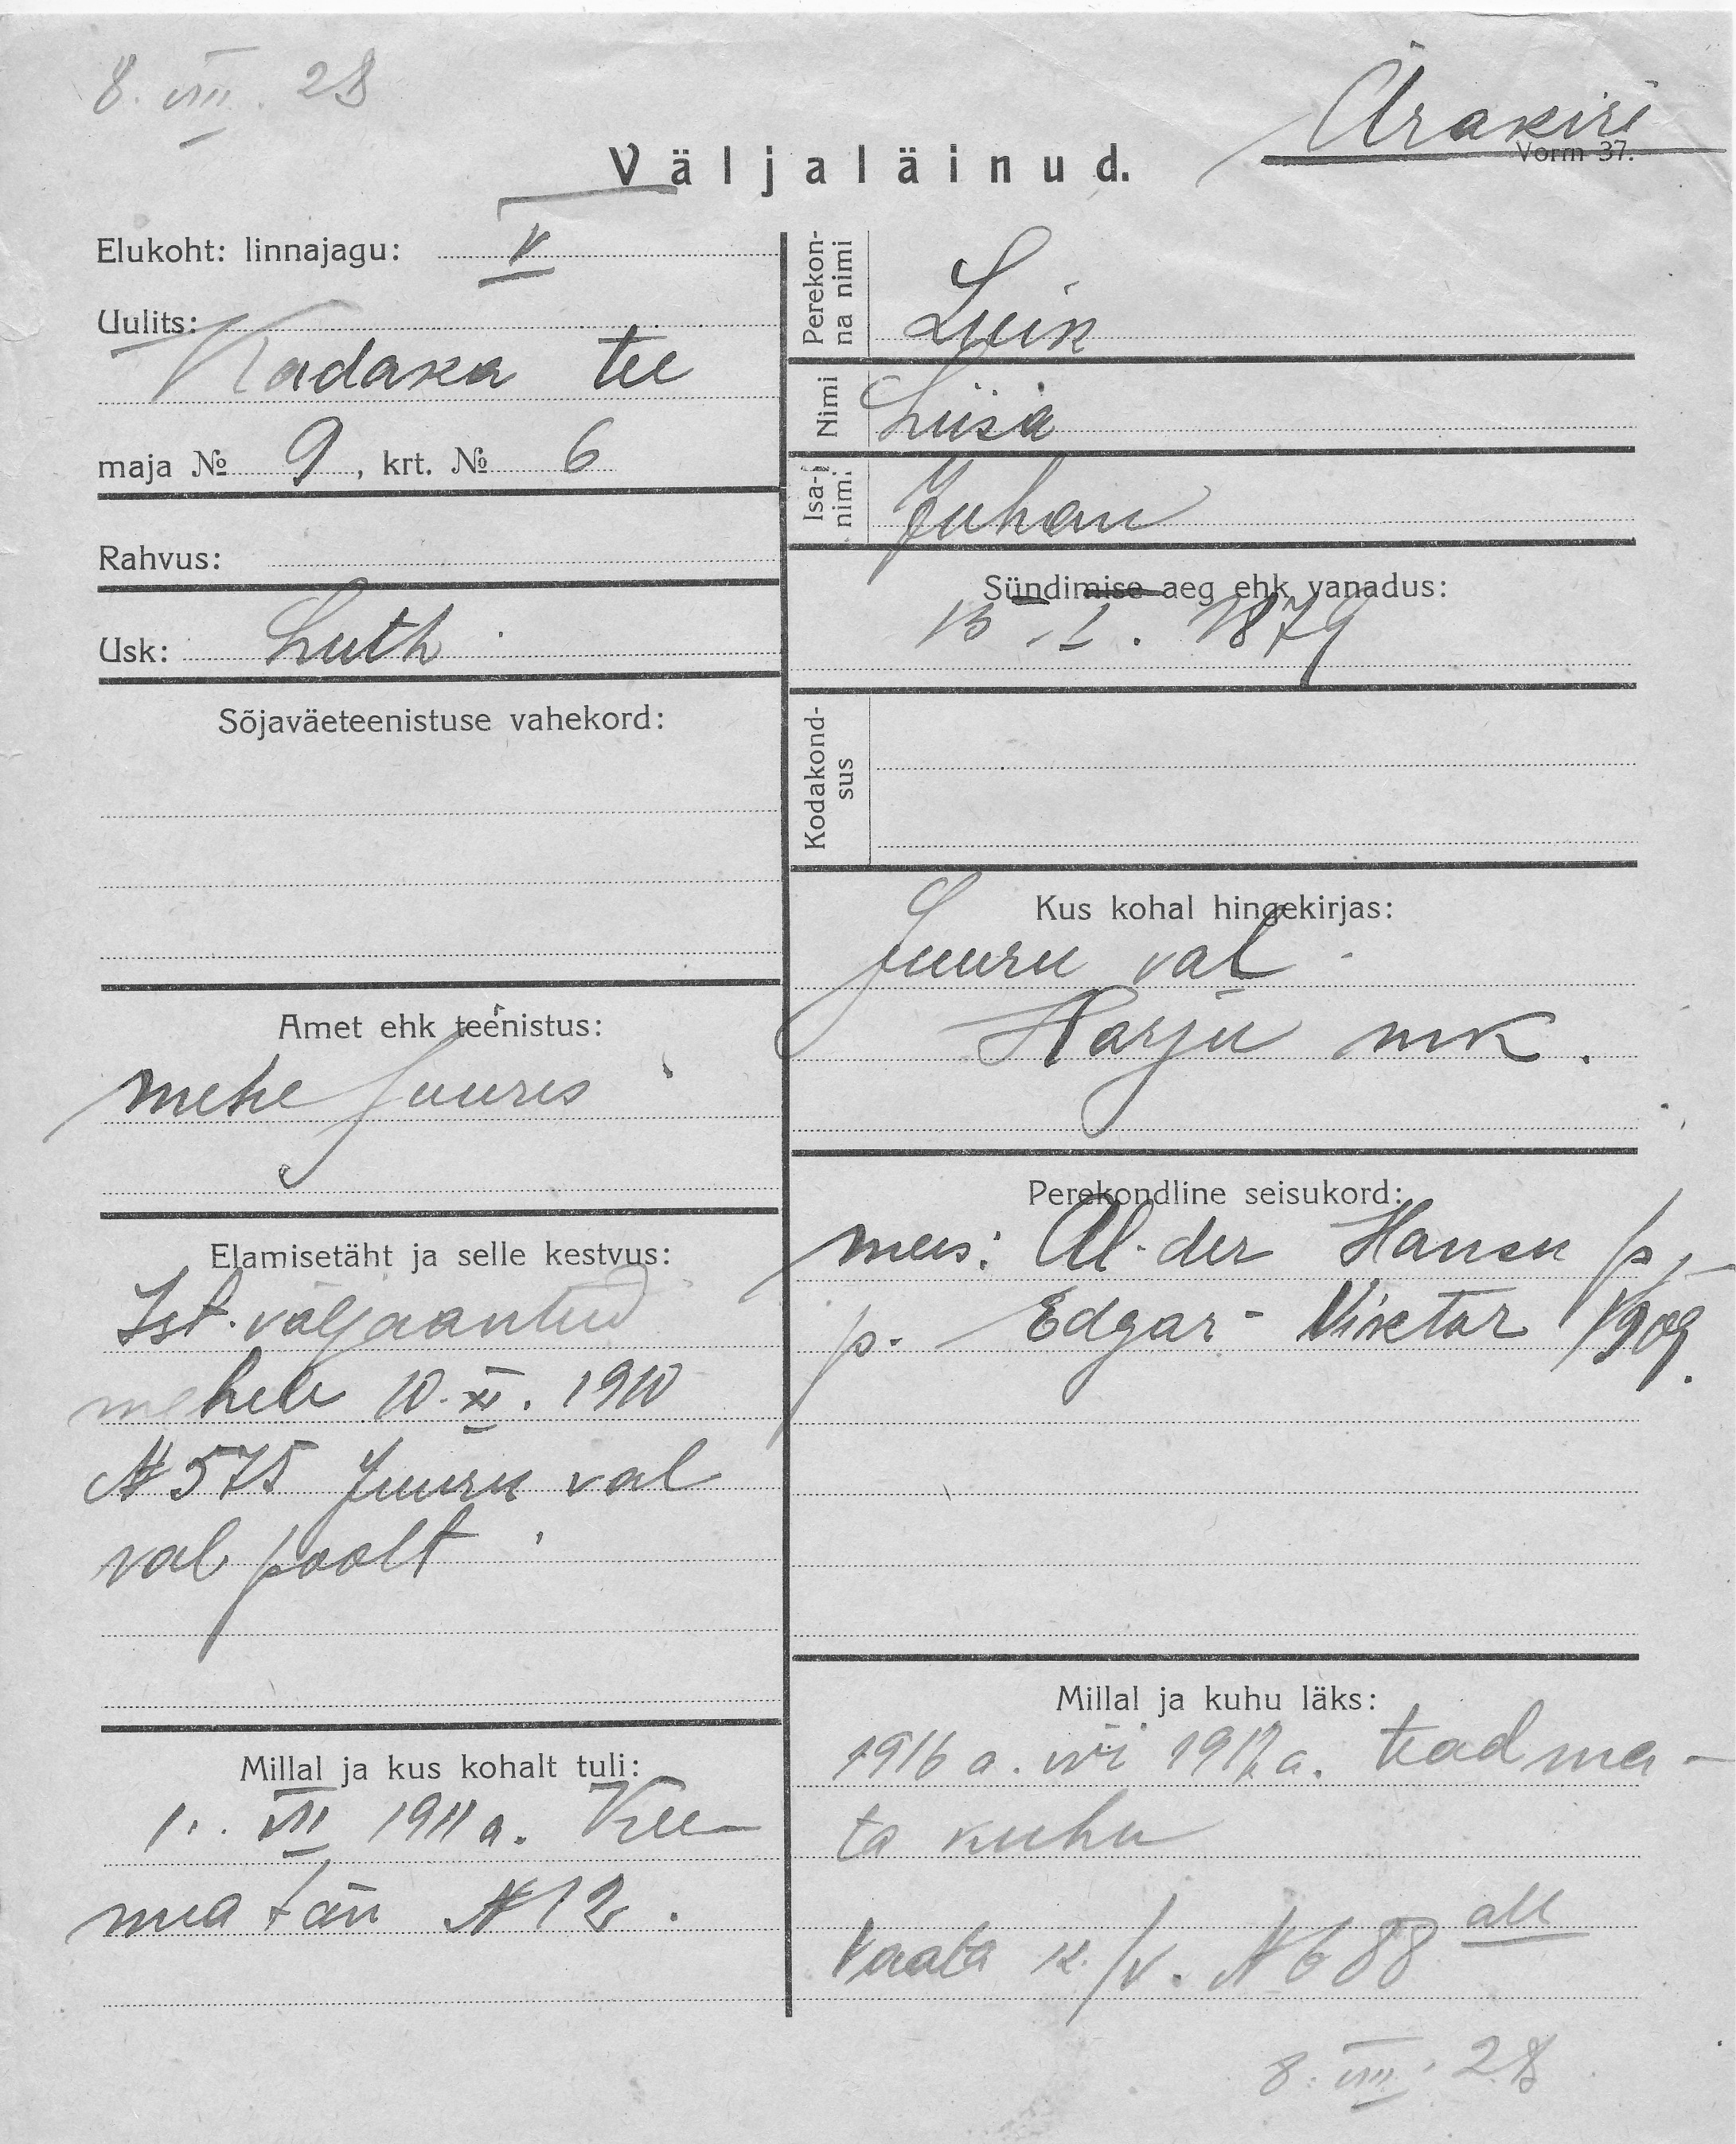 8. VIII. 28
Ärakiri
Vorm 37.
Väljaläinud.
Elukoht: linnajagu: V
Uulits:
Kadaka tee
maja № 9, krt. № 6
Rahvus:
Usk: Luth.
Sõjaväeteenistuse vahekord:
Amet ehk teenistus:
mehe juures
Elamisetäht ja selle kestvus:
Ist. väljaantud
mehele 10. XI. 1910
N 575 Juuru val
val poolt
Millal ja kus kohalt tuli:
1. VII 1911 a. Kee-
mia tän N 12.
Perekonna nimi
Luik
Nimi
Liisa
Isa-nimi
Juhan
Sündimise aeg ehk vanadus:
13. I. 1879
Kodakondsus
Kus kohal hingekirjas:
Juuru val.
Harju mk.
Perekondline seisukord:
mees: Al-der Hansu p,-
p. Edgar-Viktor 1909.
Millal ja kuhu läks:
1916 a. või 1917 a. teadma-
ta kuhu
Vaata k/v. N 688 all
8. VIII. 28